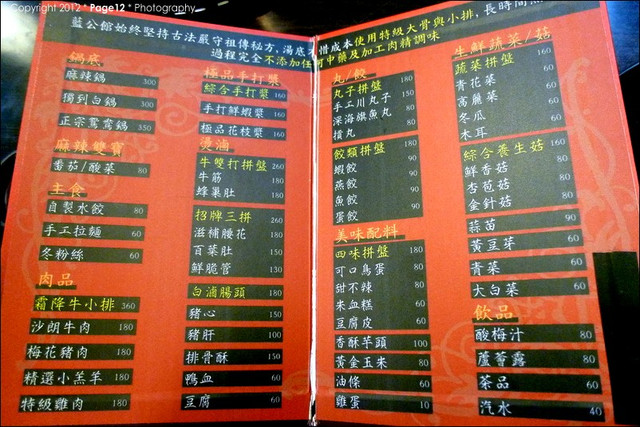 Copyright 2012 * Page12 * Photography
藍公館始終堅持古法嚴守祖傳秘方,湯底
過程完全不添加任
鍋底
麻辣鍋 300
獨到白鍋 300
正宗鴛鴦鍋 350
麻辣雙寶
番茄/酸菜 80
主食
自製水餃 80
手工拉麵 60
冬粉絲 60
肉品
霜降牛小排 360
沙朗牛肉 180
梅花豬肉 180
精選小羔羊 180
特級雞肉 180
極品手打漿
綜合手打漿 160
手打鮮蝦漿 160
極品花枝漿 160
燙滷
牛雙打拼盤 260
牛筋 180
蜂巢肚 180
招牌三拼 260
滋補腰花 180
百葉肚 150
鮮脆管 130
白滷腸頭 180
豬心 150
豬肝 100
排骨酥 150
鴨血 60
豆腐 60
惜成本使用特級大骨與小排,長時間
何中藥及加工肉精調味
丸/餃
丸子拼盤 180
手工川丸子 150
深海旗魚丸 80
摃丸 80
餃類拼盤 180
蝦餃 90
燕餃 90
魚餃 90
蛋餃 90
美味配料
四味拼盤 180
可口鳥蛋 80
甜不辣 80
米血糕 60
豆腐皮 60
香酥芋頭 100
黃金玉米 80
油條 60
雞蛋 10
生鮮蔬菜/菇
蔬菜拼盤 160
青花菜 60
高麗菜 60
冬瓜 60
木耳 60
綜合養生菇 160
鮮香菇 80
杏苞菇 80
金針菇 80
蒜苗 90
黃豆芽 60
青菜 60
大白菜 60
飲品
酸梅汁 80
蘆薈露 80
茶品 60
汽水 40